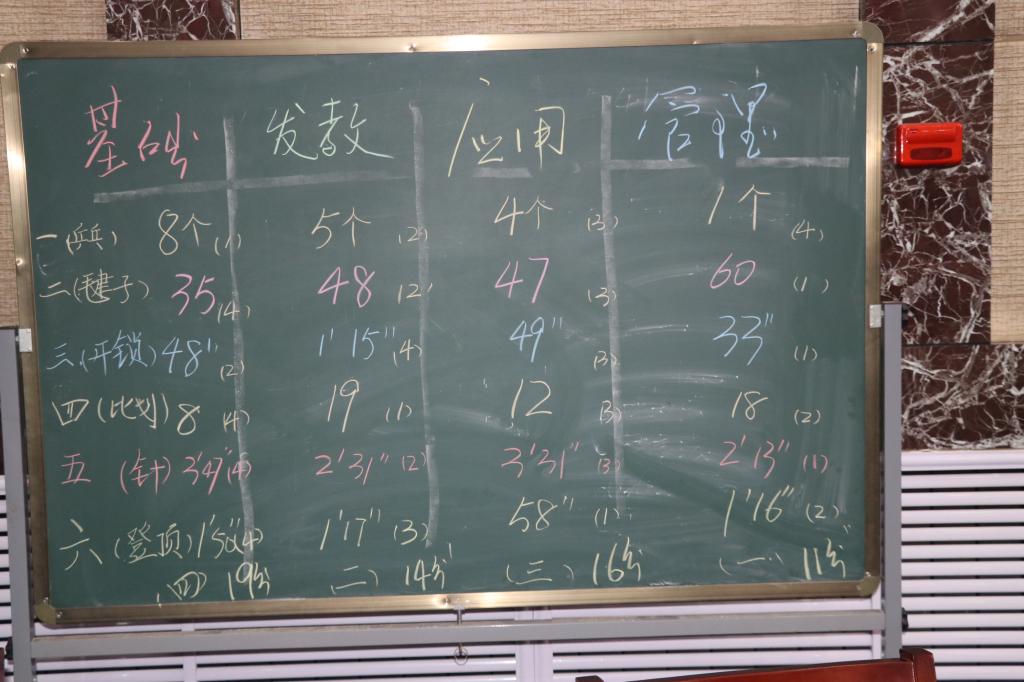 基础 发教 应用 管理
一(乒乓) 8个(1) 5个(2) 4个(3) 1个(4)
二(毽子) 35(4) 48(2) 47(3) 60(1)
三(开锁) 48"(2) 1'15"(4) 49"(3) 33"(1)
四(比划) 8(4) 19(1) 12(3) 18(2)
五(针) 3'47"(4) 2'31"(2) 3'31"(3) 2'13"(1)
六(登顶) 1'52"(4) 1'17"(3) 58"(1) 1'16"(2)
(四) 19分 (二) 14分 (三) 16分 (一) 11分